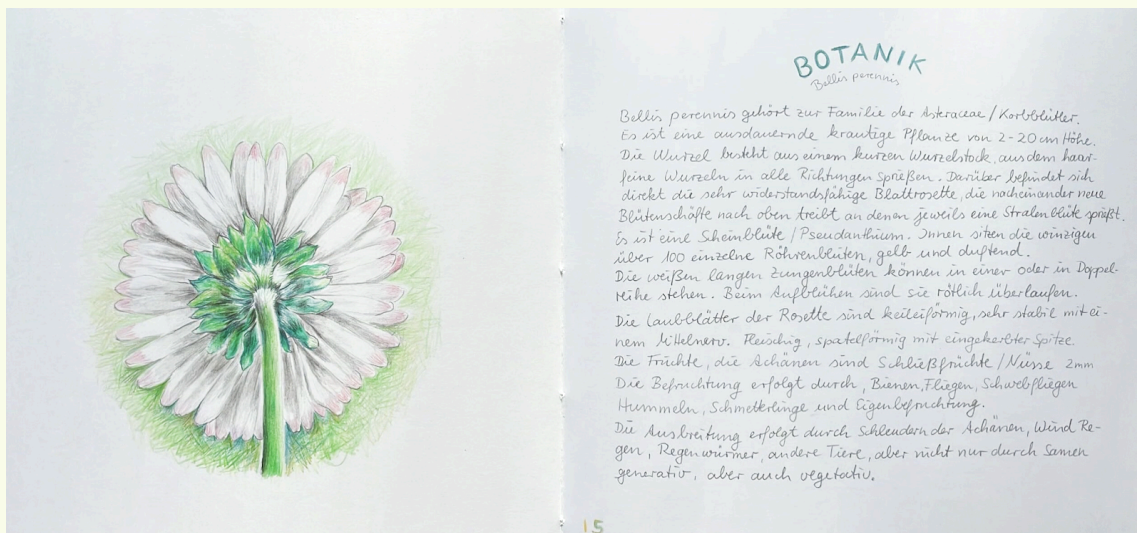 BOTANIK
Bellis perennis
Bellis perennis gehört zur Familie der Asteraceae / Korbblütler.
Es ist eine ausdauernde krautige Pflanze von 2-20 cm Höhe.
Die Wurzel besteht aus einem kurzen Wurzelstock, aus dem haar-
feine Wurzeln in alle Richtungen sprießen. Darüber befindet sich
direkt die sehr widerstandsfähige Blattrosette, die nacheinander neue
Blütenschäfte nach oben treibt an denen jeweils eine Stralenblüte sprießt.
Es ist eine Scheinblüte / Pseudanthium. Innen sitzen die winzigen
über 100 einzelne Röhrenblüten, gelb und duftend.
Die weißen langen Zungenblüten können in einer oder in Doppel-
reihe stehen. Beim Aufblühen sind sie rötlich überlaufen.
Die Laubblätter der Rosette sind keileiförmig, sehr stabil mit ei-
nem Mittelnerv. Fleischig, spatelförmig mit eingekerbter Spitze
Die Früchte, die Achänen sind Schließfrüchte / Nüsse 2mm
Die Befruchtung erfolgt durch, Bienen, Fliegen, Schwebfliegen
Hummeln, Schmetterlinge und Eigenbefruchtung.
Die Ausbreitung erfolgt durch Schleudern der Achänen, Wind Re-
gen, Regenwürmer, andere Tiere, aber nicht nur durch Samen
generativ, aber auch vegetativ.
15